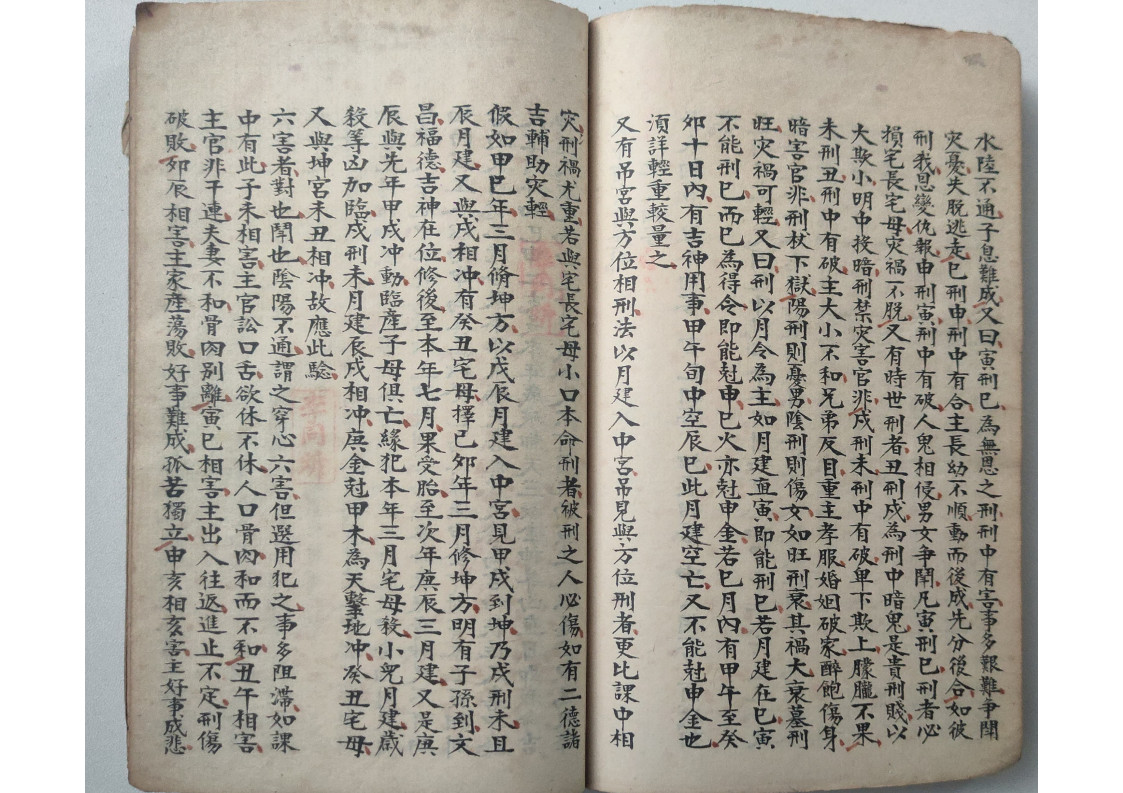 水陸不通子息難成又曰寅刑巳為無恩之刑刑中有害事多艱難爭鬪
灾憂失脫逃走巳刑申刑中有合主長幼不順動而後成先分後合如彼
刑我恩變仇報申刑寅刑中有破人鬼相侵男女爭鬪凡寅刑巳刑者必
損宅長宅母灾禍不脫又有時世刑者丑刑戌為刑中暗鬼是貴刑賤以
大欺小明中投暗刑禁灾害官非戌刑未刑中有破卑下欺上朦朧不果
未刑丑刑中有破主大小不和兄弟反目重主孝服婚姻破家醉飽傷身
暗害官非刑杖下獄陽刑則憂男陰刑則傷女如旺刑衰其禍大衰墓刑
旺灾禍可輕又曰刑以月令為主如月建直寅即能刑巳若月建在巳寅
不能刑巳而巳為得令即能尅申巳火亦尅申金若巳月內有甲午至癸
夘十日內有吉神用事甲午旬中空辰巳此月建空亡又不能尅申金也
湏詳輕重較量之
又有吊宮與方位相刑法以月建入中宮吊見與方位刑者更比課中相
灾刑禍尤重若與宅長宅母小口本命刑者被刑之人必傷如有二德諸
吉輔助灾輕
假如甲巳年三月脩坤方以戊辰月建入中宮見甲戌到坤乃戌刑未且
辰月建又與戌相冲有癸丑宅母擇己夘年三月修坤方明有子孫到文
昌福德吉神在位修後至本年七月果受胎至次年庚辰三月建又是庚
辰與先年甲戌冲動臨產子母俱亡緣犯本年三月宅母殺小兒月建歲
殺等凶加臨戌刑未月建辰戌相冲庚金尅甲木為天擊地冲癸丑宅母
又與坤宮未丑相冲故應此驗
六害者對也鬪也陰陽不通謂之穿心六害但選用犯之事多阻滯如課
中有此子未相害主官訟口舌欲休不休人口骨肉和而不和丑午相害
主官非干連夫妻不和骨肉別離寅巳相害主出入往返進止不定刑傷
破敗夘辰相害主家產蕩敗好事難成孤苦獨立申亥相亥害主好事成悲